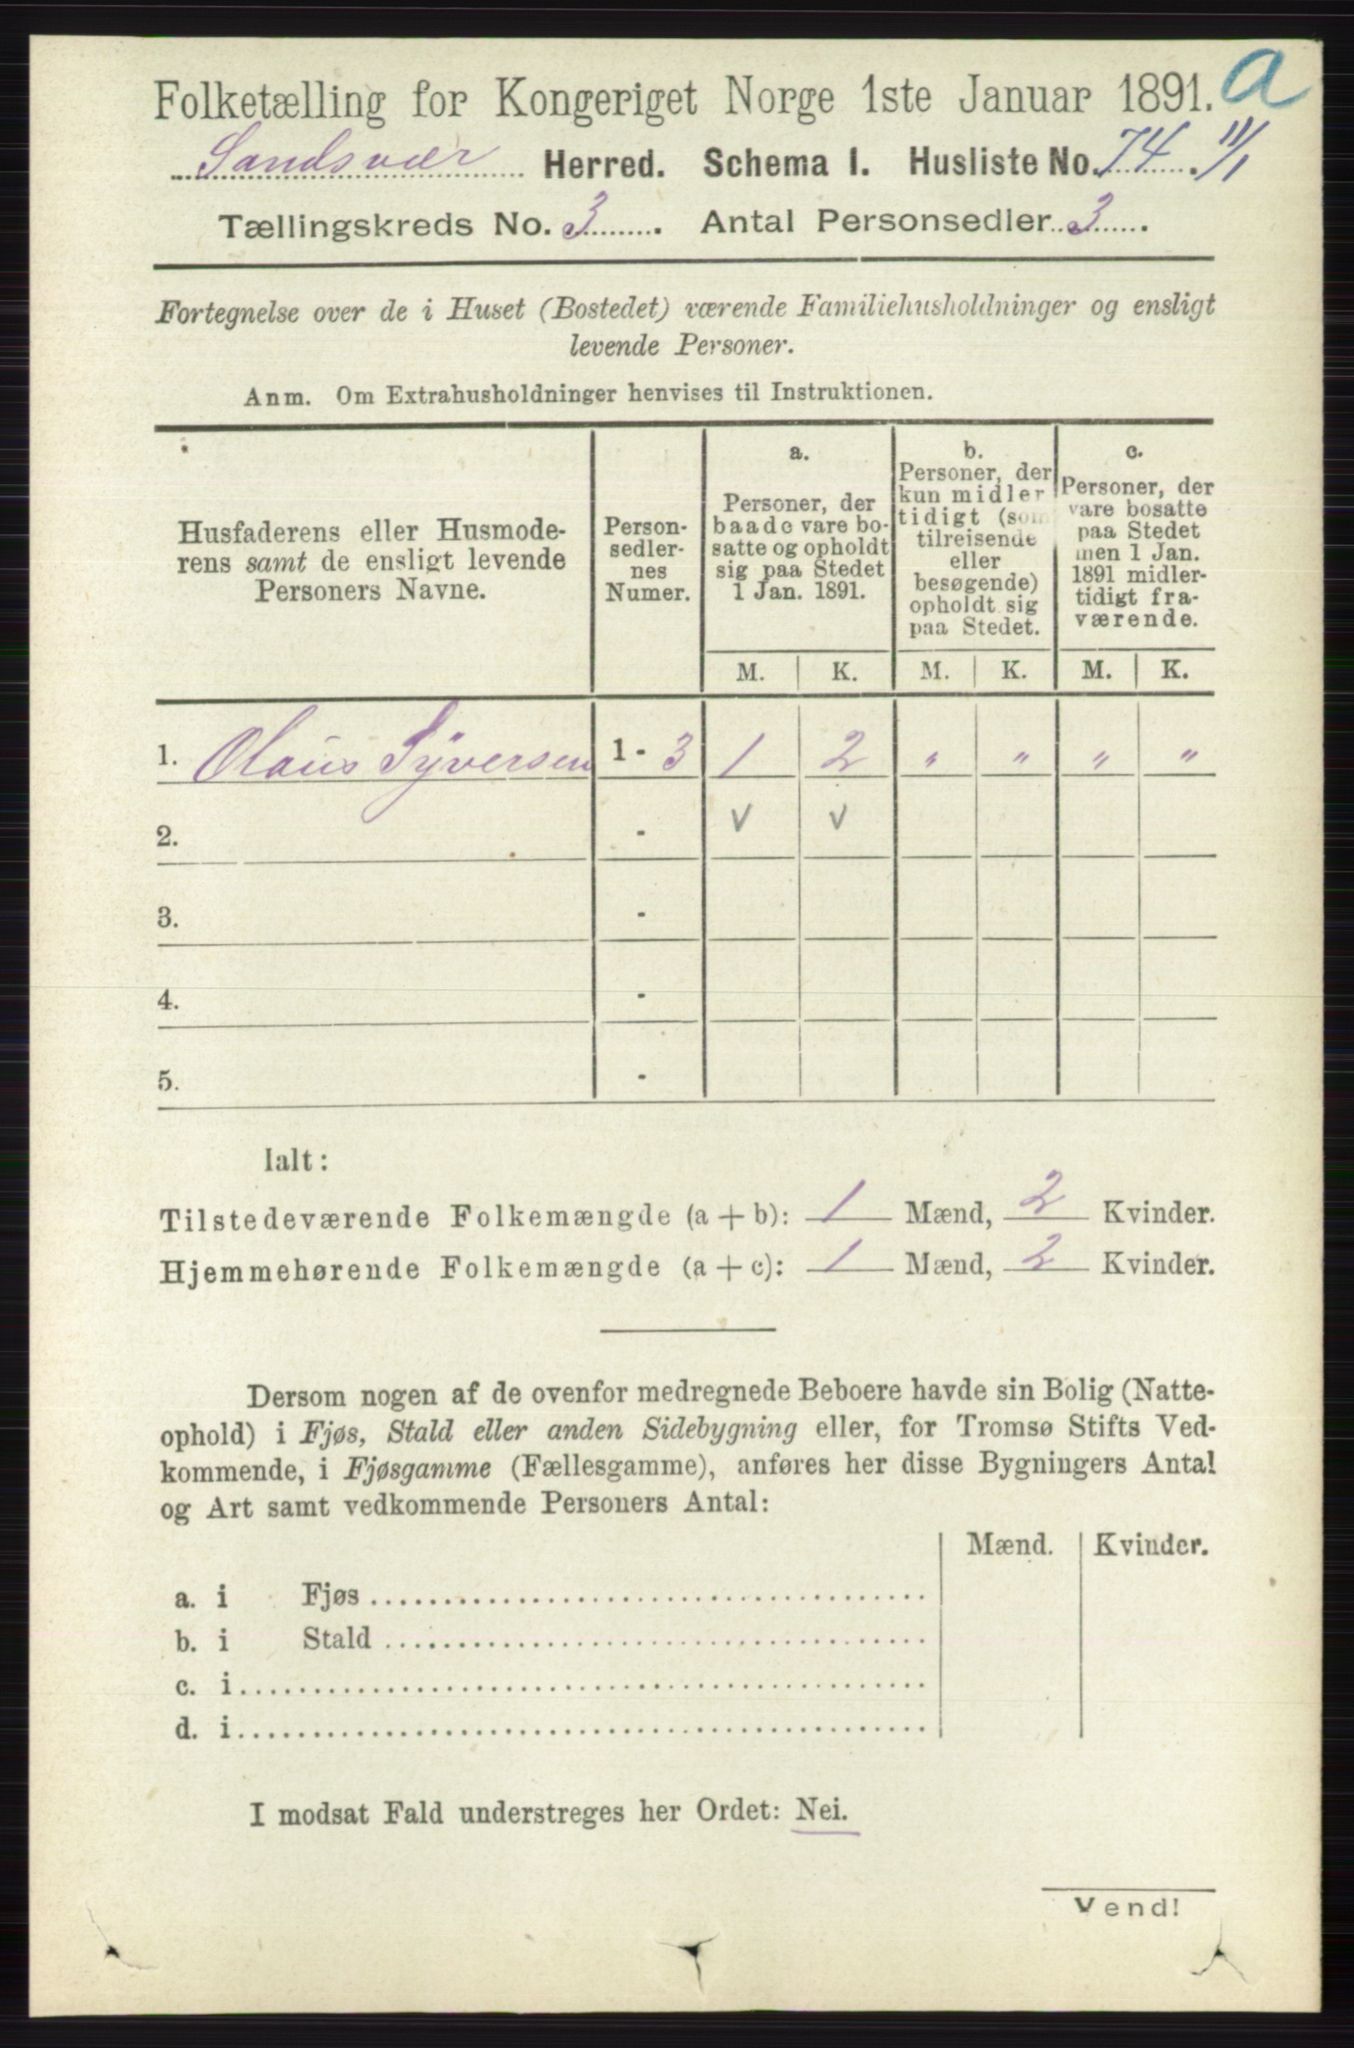 Folketælling for Kongeriget Norge 1ste Januar 1891. a
Sandsvær Herred. Schema I. Husliste No. 74. 11/1
Tællingskreds No. 3. Antal Personsedler 3.
Fortegnelse over de i Huset (Bostedet) værende Familiehusholdninger og ensligt
levende Personer.
Anm. Om Extrahusholdninger henvises til Instruktionen.
Husfaderens eller Husmode-
rens samt de ensligt levende
Personers Navne.
Person-
sedler-
nes
Numer.
a.
Personer, der
baade vare bo-
satte og opholdt
sig paa Stedet
1 Jan. 1891.
b.
Personer, der
kun midler
tidigt (som
tilreisende
eller
besøgende)
opholdt sig
paa Stedet.
c.
Personer, der
vare bosatte
paa Stedet
men 1 Jan.
1891 midler-
tidigt fra-
værende.
M. K. M. K. M. K.
1. Olaus Syversen 1 - 3 1 2 " " " "
2. - v v
3. -
4. -
5. -
Ialt:
Tilstedeværende Folkemængde (a + b): 1 Mænd, 2 Kvinder.
Hjemmehørende Folkemængde (a + c): 1 Mænd, 2 Kvinder.
Dersom nogen af de ovenfor medregnede Beboere havde sin Bolig (Natte-
ophold) i Fjøs, Stald eller anden Sidebygning eller, for Tromsø Stifts Ved-
kommende, i Fjøsgamme (Fællesgamme), anføres her disse Bygningers Antal
og Art samt vedkommende Personers Antal:
Mænd. Kvinder.
a. i Fjøs
b. i Stald
c. i
d. i
I modsat Fald understreges her Ordet: Nei.
Vend!